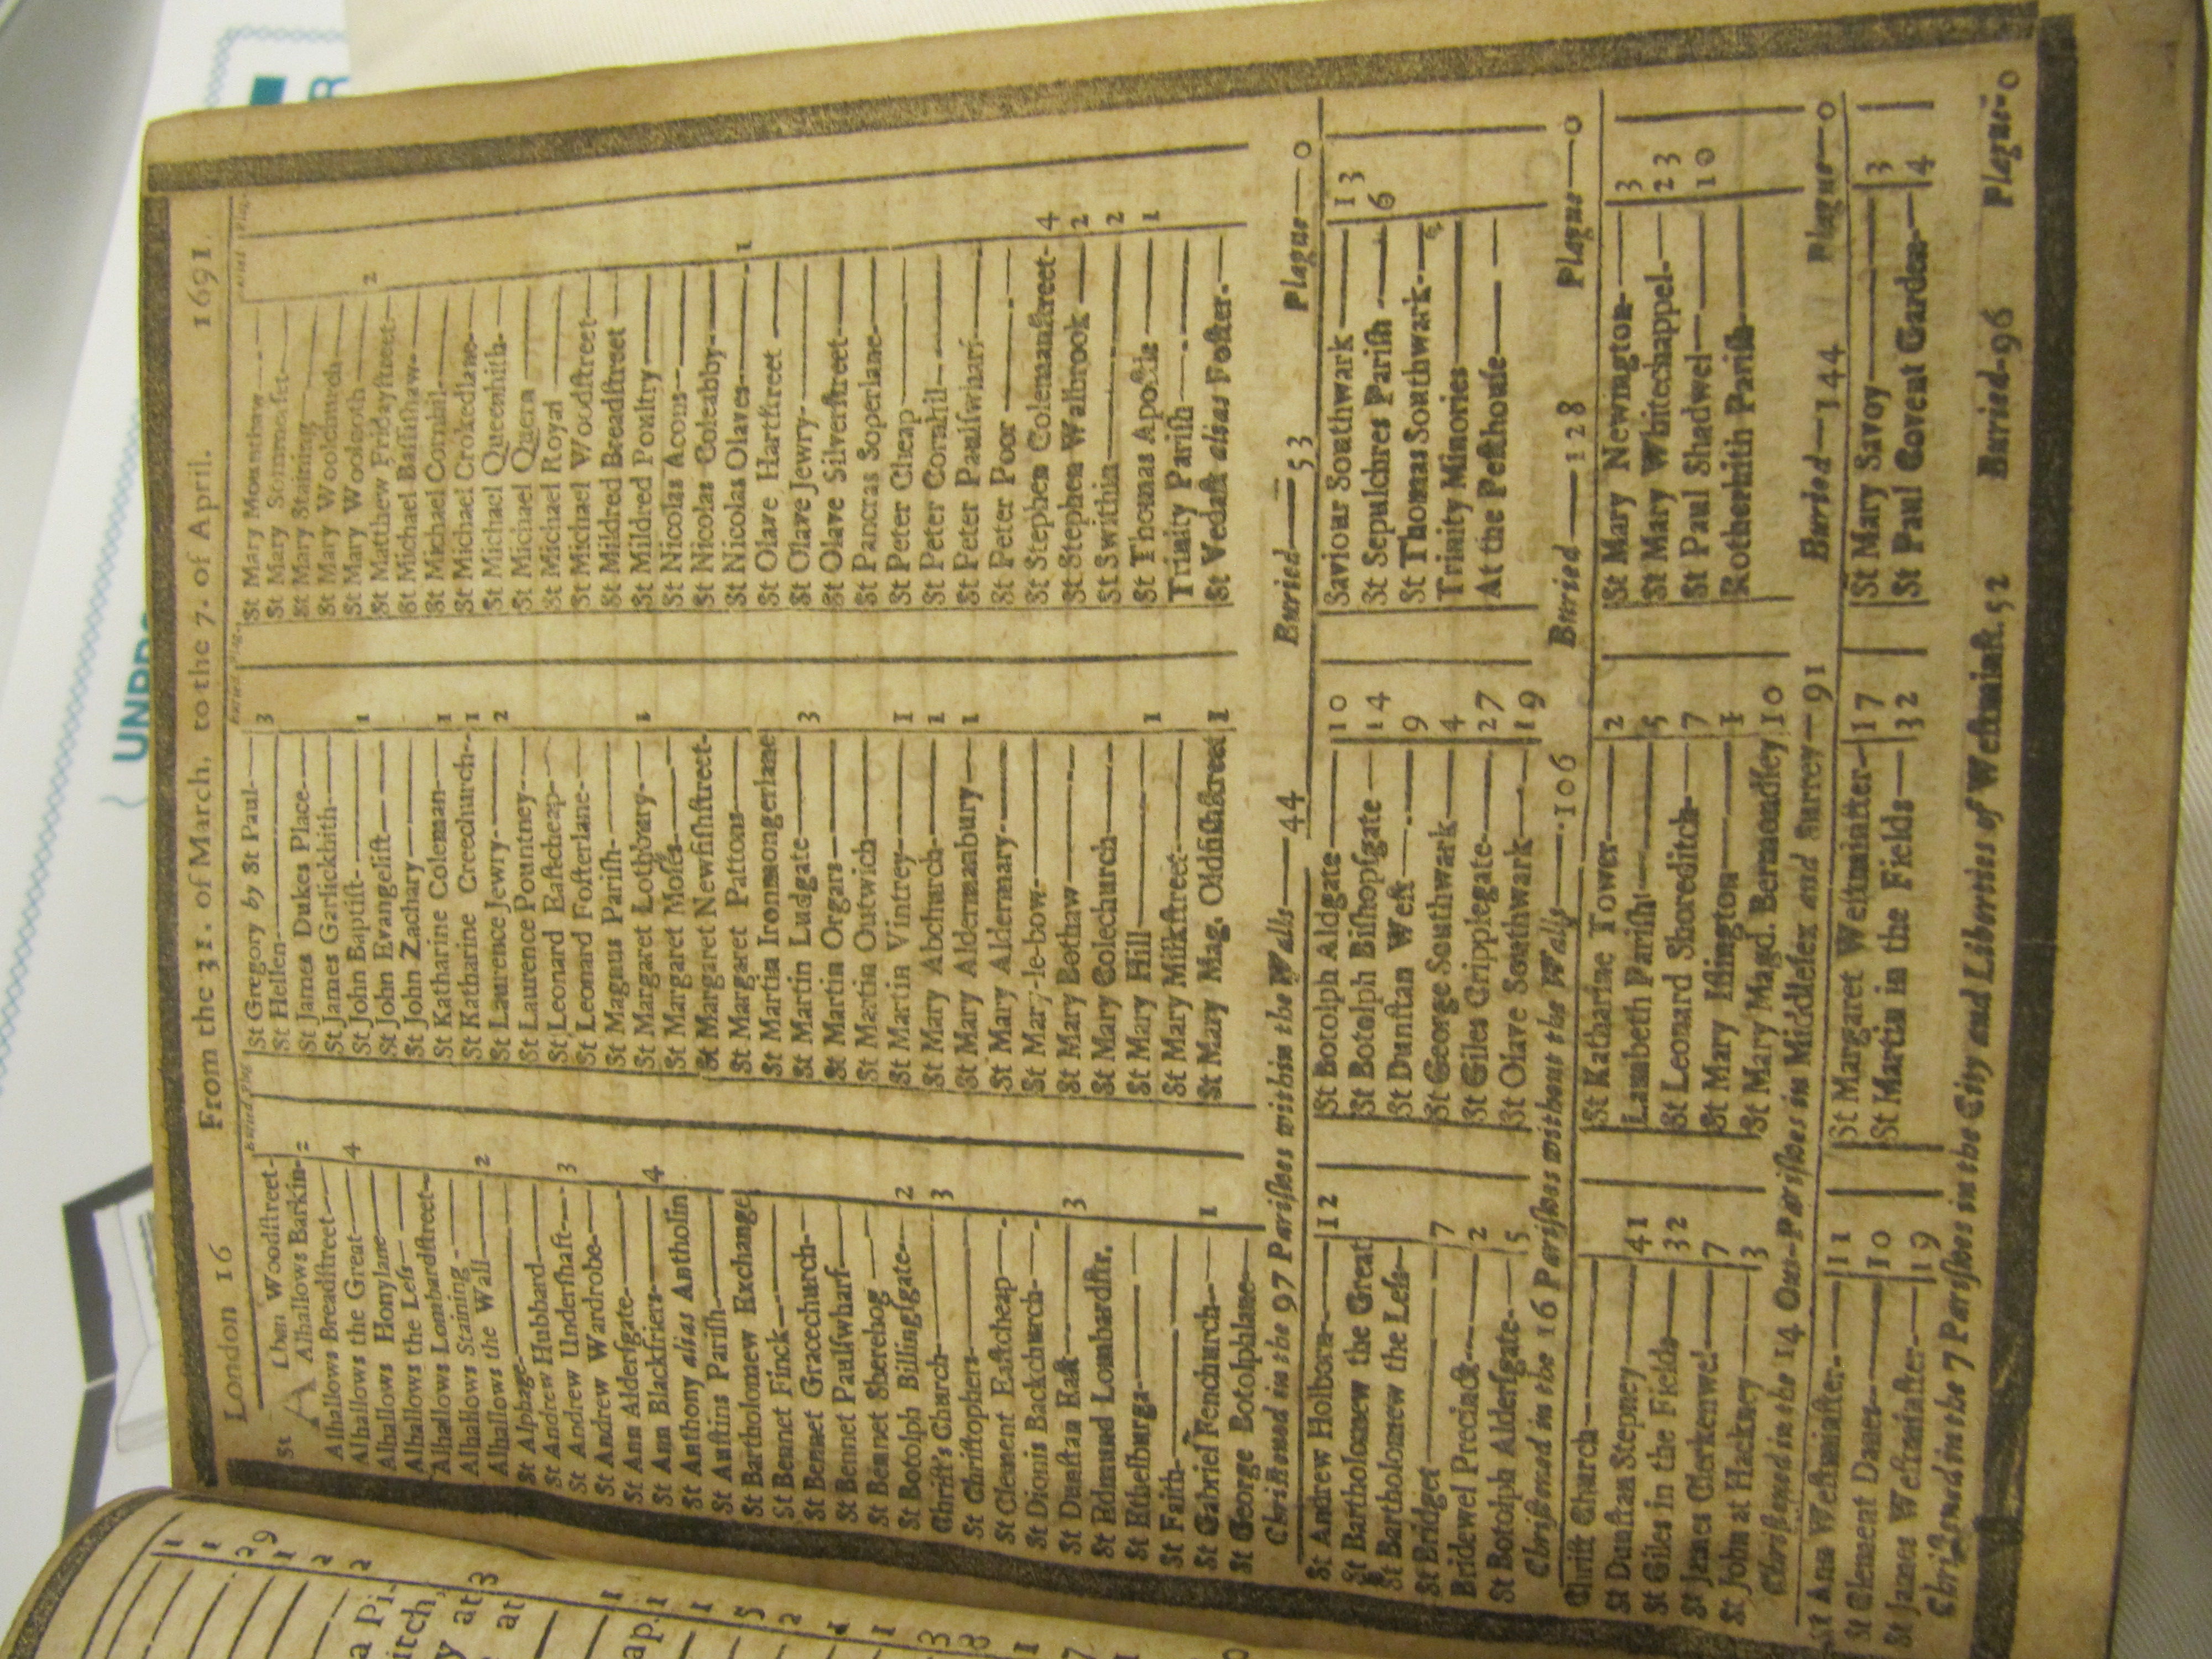 London 16 From the 31. of March, to the 7. of April. 1691
St ALban Woodſtreet-
Alhallows Barkin- 2
Alhallows Breadſtreet
Alhallows the Great 4
Alhallows Honylane
Alhallows the Leſs
Alhallows Lombardſtreet
Alhallows Staining
Alhallows the Wall 2
St Alphage
St Andrew Hubbard
St Andrew Underſhaft 3
St Andrew Wardrobe
St Ann Alderſgate
St Ann Blackfriers 4
St Anthony alias Antholin
St Auſtins Pariſh
St Bartholomew Exchange
St Bennet Finck
St Bennet Gracechurch
St Bennet Paulſwharf
St Bennet Sherehog
St Botolph Billingſgate 2
Chriſt's Church 3
St Chriſtophers
St Clement Eaſtcheap
St Dionis Backchurch
St Dunſtan Eaſt 3
St Edmund Lombardſtr.
St Ethelburga
St Faith
St Gabriel Fenchurch 1
St George Botolphlane
St Gregory by St Paul 3
St Hellen
St James Dukes Place
St James Garlickhith
St John Baptiſt 1
St John Evangeliſt
St John Zachary
St Katharine Coleman 1
St Katharine Creechurch 1
St Laurence Jewry 2
St Laurence Pountney
St Leonard Eaſtcheap
St Leonard Foſterlane
St Magnus Pariſh
St Margaret Lothbury 1
St Margaret Moſes
St Margaret Newfiſhſtreet
St Margaret Pattons
St Martin Ironmongerlane
St Martin Ludgate 3
St Martin Orgars
St Martin Outwich
St Martin Vintrey 1
St Mary Abchurch 1
St Mary Aldermanbury 1
St Mary Aldermary
St Mary-le-bow
St Mary Bothaw
St Mary Colechurch
St Mary Hill 1
St Mary Milkſtreet
St Mary Mag. Oldfiſhſtreet 1
St Mary Mounthaw
St Mary Sommerſet
St Mary Staining
St Mary Woolchurch
St Mary Woolnoth 2
St Matthew Fridayſtreet
St Michael Baſſiſhaw
St Michael Cornhil
St Michael Crokedlane
St Michael Queenhith
St Michael Quern
St Michael Royal
St Michael Woodſtreet
St Mildred Breadſtreet
St Mildred Poultry
St Nicolas Acons
St Nicolas Coleabby
St Nicolas Olaves 1
St Olave Hartſtreet
St Olave Jewry
St Olave Silverſtreet
St Pancras Soperlane
St Peter Cheap
St Peter Cornhil
St Peter Paulſwharf
St Peter Poor
St Stephen Colemanſtreet 4
St Stephen Walbrook 2
St Swithin 2
St Thomas Apoſtle 1
Trinity Pariſh
St Vedaſt alias Foſter
Chriſtened in the 97 Pariſhes within the Walls—44 Buried—53 Plague—0
St Andrew Holborn 12
St Bartholomew the Great
St Bartholomew the Leſs
St Bridget 7
Bridewel Precinct 2
St Botolph Alderſgate 5
St Botolph Aldgate 10
St Botolph Biſhopſgate 14
St Dunſtan Weſt 9
St George Southwark 4
St Giles Cripplegate 27
St Olave Southwark 19
Saviour Southwark 13
St Sepulchres Pariſh 6
St Thomas Southwark
Trinity Minories
At the Peſthouſe
Chriſtened in the 16 Pariſhes without the Walls—106 Buried—128 Plague—0
Chriſt Church
St Dunſtan Stepney 41
St Giles in the Fields 32
St James Clerkenwel 7
St John at Hackney 3
St Katharine Tower 2
Lambeth Pariſh 5
St Leonard Shoreditch 7
St Mary Iſlington 1
St Mary Magd. Bermondſey 10
St Mary Newington 3
St Mary Whitechappel 23
St Paul Shadwel 10
Rotherhith Pariſh
Chriſtened in the 14 Out-Pariſhes in Middleſex and Surrey—91 Buried—144 Plague—0
St Ann Weſtminſter 11
St Clement Danes 10
St James Weſtminſter 19
St Margaret Weſtminſter 17
St Martin in the Fields 32
St Mary Savoy 3
St Paul Covent Garden 4
Chriſtened in the 7 Pariſhes in the City and Liberties of Weſtminſt. 52 Buried-96 Plague-0